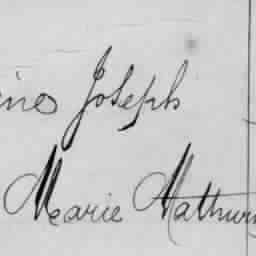 ino Joseph
Marie Mathurin